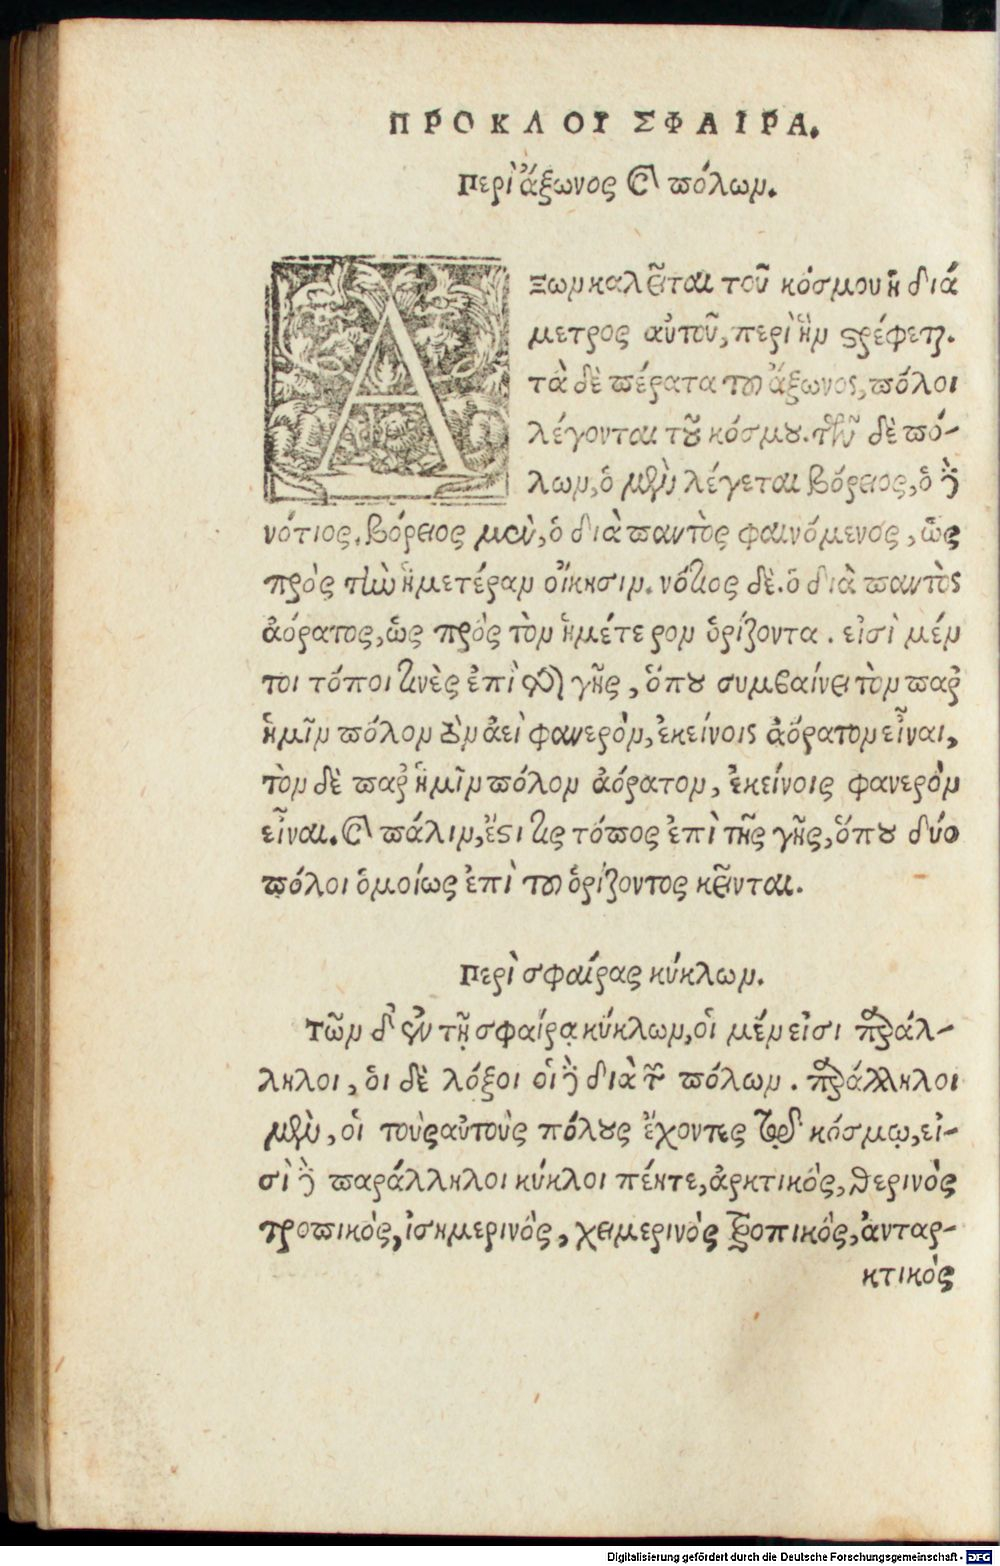 ΠΡΟΚΛΟΥ ΣΦΑΙΡΑ.
Περὶ ἄξωνος καὶ πόλων.
Αξων καλεῖται τοῦ κόσμου ἡ διά
μετρος αὐτοῦ, περὶ ἣν στρέφεται.
τὰ δὲ πέρατα τοῦ ἄξωνος, πόλοι
λέγονται τοῦ κόσμου. τῶν δὲ πό-
λων, ὁ μὲν λέγεται βόρειος, ὁ δὲ
νότιος. βόρειος μὲν, ὁ διὰ παντὸς φαινόμενος, ὡς
πρὸς τὴν ἡμετέραν οἴκησιν. νότιος δὲ. ὁ διὰ παντὸς
ἀόρατος, ὡς πρὸς τὸν ἡμέτερον ὁρίζοντα. εἰσὶ μέν
τοι τόποι τινὲς ἐπὶ τῆς γῆς, ὅπου συμβαίνει τὸν παρ'
ἡμῖν πόλον τὸν ἀεὶ φανερὸν, ἐκείνοις ἀόρατον εἶναι,
τὸν δὲ παρ' ἡμῖν πόλον ἀόρατον, ἐκείνοις φανερὸν
εἶναι. καὶ πάλιν, ἔστι τις τόπος ἐπὶ τῆς γῆς, ὅπου δύο
πόλοι ὁμοίως ἐπὶ τοῦ ὁρίζοντος κεῖνται.
Περὶ σφαίρας κύκλων.
Τῶν δ' ἐν τῇ σφαίρᾳ κύκλων, οἱ μέν εἰσι παράλ-
ληλοι, ὁι δὲ λόξοι οἱ δὲ διὰ τῶν πόλων. παράλληλοι
μὲν, οἱ τοὺς αὐτοὺς πόλους ἔχοντες τῷ κόσμῳ, εἰ-
σὶ δὲ παράλληλοι κύκλοι πέντε, ἀρκτικὸς, θερινὸς
τροπικὸς, ἰσημερινὸς, χειμερινὸς τροπικὸς, ἀνταρ-
κτικὸς
Digitalisierung gefördert durch die Deutsche Forschungsgemeinschaft - DFG